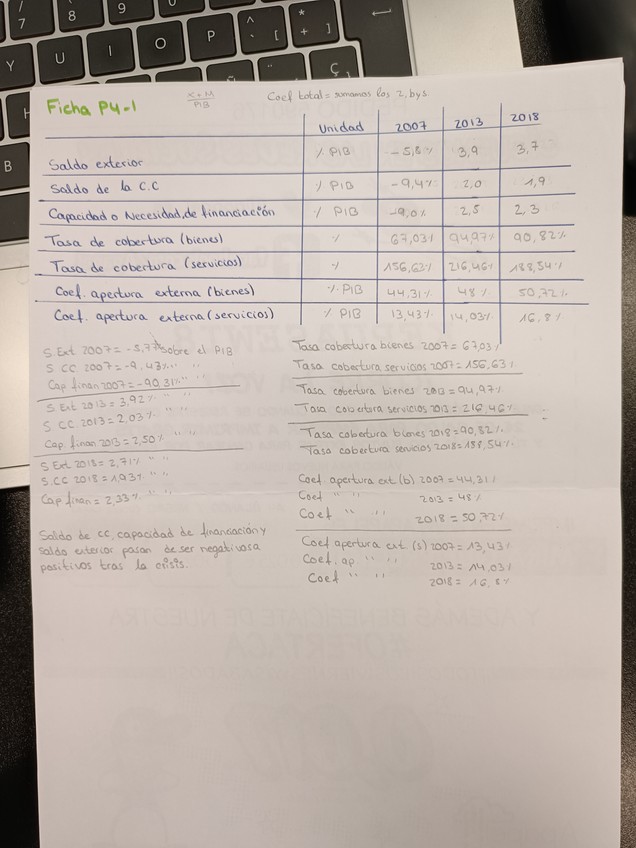 7 8 9
Y U I O P ^ [ * + ]
H Ç
B
Ficha P4-1
X+M
PIB
Coef total = sumamos los 2, b y s.
Unidad 2007 2013 2018
Saldo exterior % PIB -5,8% 3,9 3,7
Saldo de la C.C % PIB -9,4% 2,0 1,9
Capacidad o Necesidad de financiación % PIB -9,0% 2,5 2,3
Tasa de cobertura (bienes) % 67,03% 94,97% 90,82%
Tasa de cobertura (servicios) % 156,63% 216,46% 188,54%
Coef. apertura externa (bienes) % PIB 44,31% 48% 50,72%
Coef. apertura externa (servicios) % PIB 13,43% 14,03% 16,8%
S Ext 2007 = -5,77% Sobre el PIB
S CC 2007 = -9,43% " "
Cap finan 2007 = -90,31% " "
S Ext 2013 = 3,92% " "
S CC 2013 = 2,03% " "
Cap. finan 2013 = 2,50% " "
S Ext 2018 = 2,71% " "
S. CC 2018 = 1,93% " "
Cap finan = 2,33% " "
Saldo de cc, capacidad de financiación y
saldo exterior pasan de ser negativos a
positivos tras la crisis.
Tasa cobertura bienes 2007 = 67,03%
Tasa cobertura servicios 2007 = 156,63%
Tasa cobertura bienes 2013 = 94,97%
Tasa cobertura servicios 2013 = 216,46%
Tasa cobertura bienes 2018 = 90,82%
Tasa cobertura servicios 2018 = 188,54%
Coef. apertura ext (b) 2007 = 44,31%
Coef " " 2013 = 48%
Coef " " 2018 = 50,72%
Coef apertura ext. (s) 2007 = 13,43%
Coef. ap. " " 2013 = 14,03%
Coef " " 2018 = 16,8%